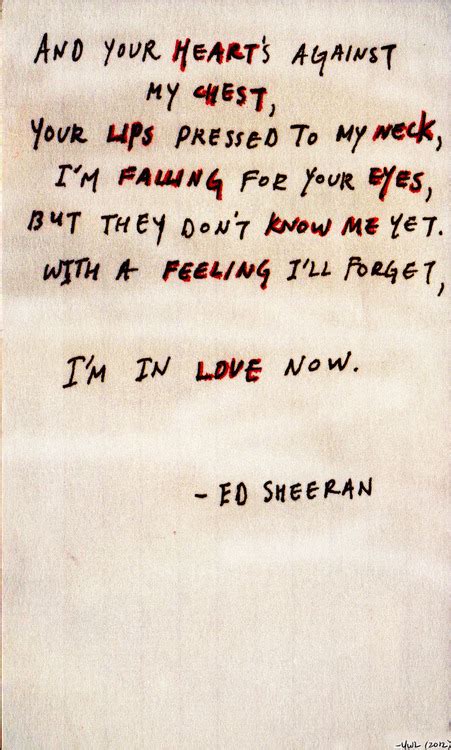 AND YOUR HEART'S AGAINST
MY CHEST,
YOUR LIPS PRESSED TO MY NECK,
I'M FALLING FOR YOUR EYES,
BUT THEY DON'T KNOW ME YET.
WITH A FEELING I'LL FORGET,
I'M IN LOVE NOW.
- ED SHEERAN
-YWL (2012)